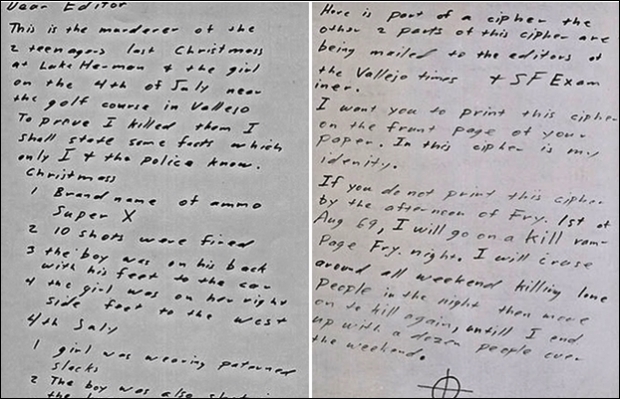 Dear Editor
This is the murderer of the
2 teenagers last Christmass
at Lake Herman & the girl
on the 4th of July near
the golf course in Vallejo
To prove I killed them I
shall state some facts which
only I & the police know.
Christmass
1 Brand name of ammo
Super X
2 10 shots were fired
3 the boy was on his back
with his feet to the car
4 the girl was on her right
side feet to the west
4th July
1 girl was wearing paterned
slacks
2 The boy was also shot in
the
Here is part of a cipher the
other 2 parts of this cipher are
being mailed to the editors of
the Vallejo times & SF Exam
iner.
I want you to print this cipher
on the front page of your
paper. In this cipher is my
idenity.
If you do not print this cipher
by the afternoon of Fry. 1st of
Aug 69, I will go on a kill ram-
Page Fry. night. I will cruse
around all weekend killing lone
people in the night then move
on to kill again, untill I end
up with a dozen people over
the weekend.